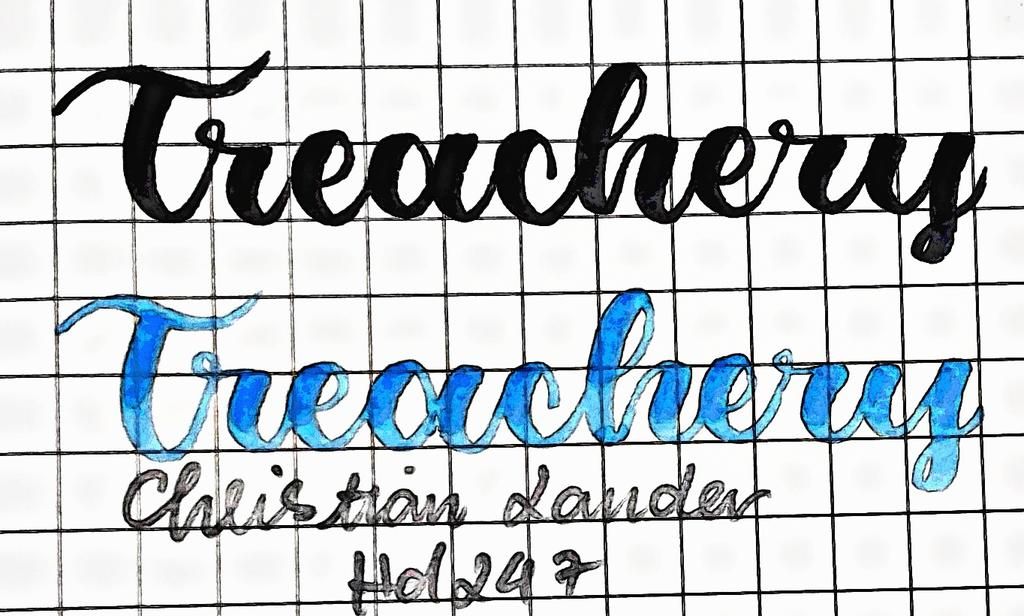 Treachery
Treachery
Christian Lander
Hd247